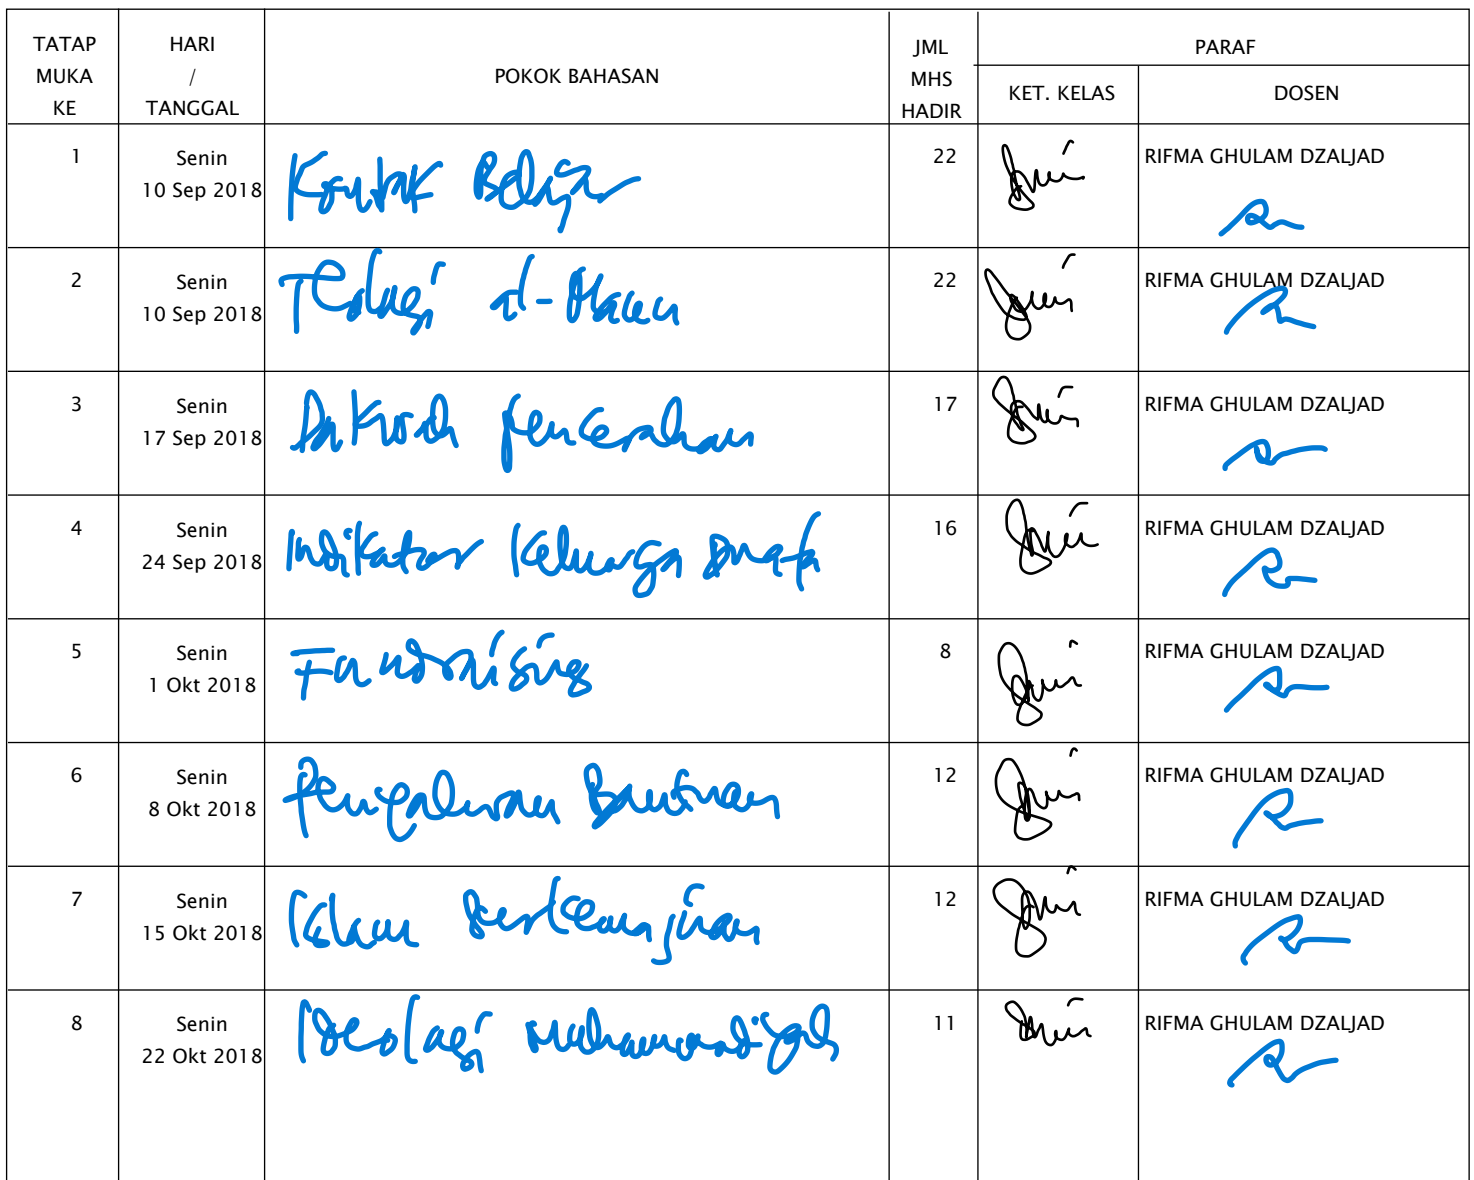 TATAP MUKA KE
HARI / TANGGAL
POKOK BAHASAN
JML MHS HADIR
PARAF
KET. KELAS
DOSEN
1 Senin 10 Sep 2018 Kontrak Belajar 22 RIFMA GHULAM DZALJAD
2 Senin 10 Sep 2018 Teologi al-Maun 22 RIFMA GHULAM DZALJAD
3 Senin 17 Sep 2018 Dakwah pencerahan 17 RIFMA GHULAM DZALJAD
4 Senin 24 Sep 2018 Indikator Keluarga Duafa 16 RIFMA GHULAM DZALJAD
5 Senin 1 Okt 2018 Fundraising 8 RIFMA GHULAM DZALJAD
6 Senin 8 Okt 2018 Penyaluran Bantuan 12 RIFMA GHULAM DZALJAD
7 Senin 15 Okt 2018 Islam Berkemajuan 12 RIFMA GHULAM DZALJAD
8 Senin 22 Okt 2018 Ideologi Muhammadiyah 11 RIFMA GHULAM DZALJAD